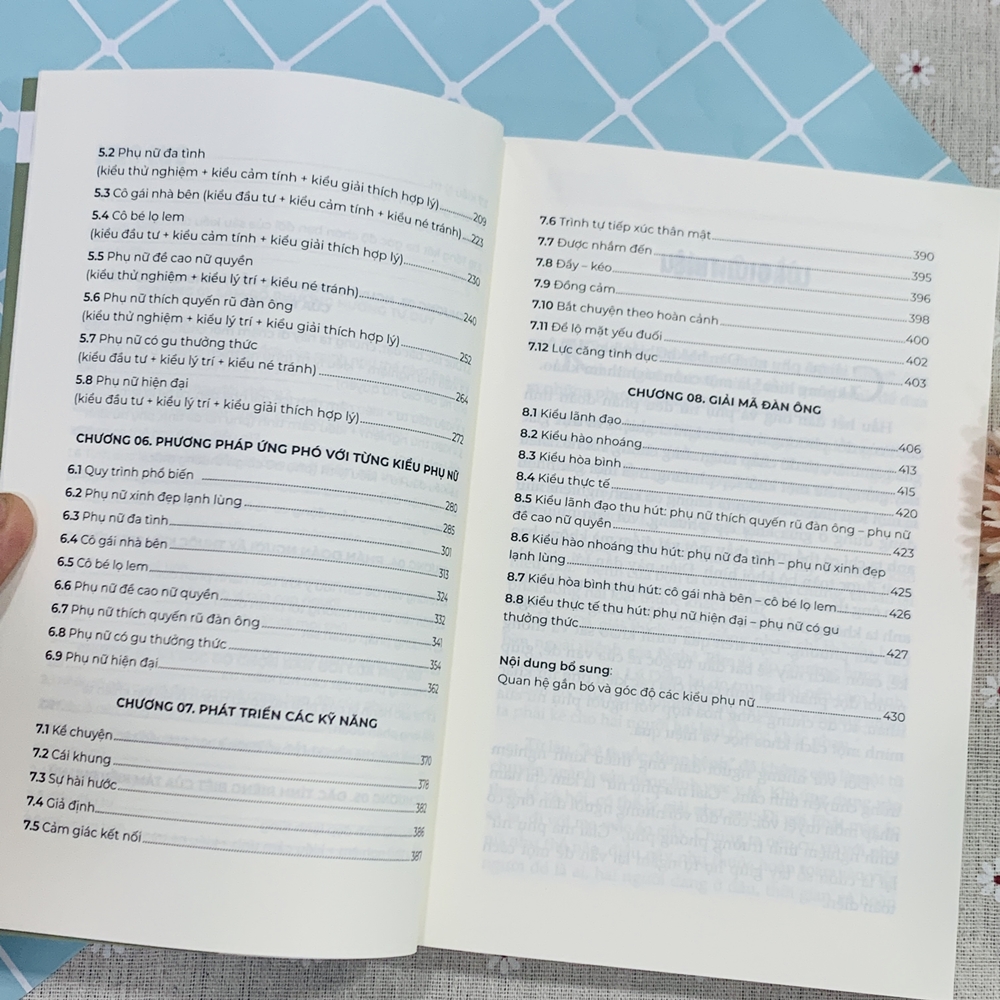 5.2 Phụ nữ đa tình
(kiểu thử nghiệm + kiểu cảm tính + kiểu giải thích hợp lý) 209
5.3 Cô gái nhà bên (kiểu đầu tư + kiểu cảm tính + kiểu né tránh) 223
5.4 Cô bé lọ lem
(kiểu đầu tư + kiểu cảm tính + kiểu giải thích hợp lý) 230
5.5 Phụ nữ đề cao nữ quyền
(kiểu thử nghiệm + kiểu lý trí + kiểu né tránh) 240
5.6 Phụ nữ thích quyến rũ đàn ông
(kiểu thử nghiệm + kiểu lý trí + kiểu giải thích hợp lý) 252
5.7 Phụ nữ có gu thưởng thức
(kiểu đầu tư + kiểu lý trí + kiểu né tránh) 264
5.8 Phụ nữ hiện đại
(kiểu đầu tư + kiểu lý trí + kiểu giải thích hợp lý) 272
CHƯƠNG 06. PHƯƠNG PHÁP ỨNG PHÓ VỚI TỪNG KIỂU PHỤ NỮ
6.1 Quy trình phổ biến 280
6.2 Phụ nữ xinh đẹp lạnh lùng 285
6.3 Phụ nữ đa tình 301
6.4 Cô gái nhà bên 313
6.5 Cô bé lọ lem 324
6.6 Phụ nữ đề cao nữ quyền 332
6.7 Phụ nữ thích quyến rũ đàn ông 341
6.8 Phụ nữ có gu thưởng thức 354
6.9 Phụ nữ hiện đại 362
CHƯƠNG 07. PHÁT TRIỂN CÁC KỸ NĂNG
7.1 Kể chuyện 370
7.2 Cái khung 378
7.3 Sự hài hước 382
7.4 Giả định 386
7.5 Cảm giác kết nối 387
7.6 Trình tự tiếp xúc thân mật 390
7.7 Được nhắm đến 395
7.8 Đẩy – kéo 396
7.9 Đồng cảm 398
7.10 Bắt chuyện theo hoàn cảnh 400
7.11 Để lộ mặt yếu đuối 402
7.12 Lực căng tình dục 403
CHƯƠNG 08. GIẢI MÃ ĐÀN ÔNG
8.1 Kiểu lãnh đạo 406
8.2 Kiểu hào nhoáng 413
8.3 Kiểu hòa bình 415
8.4 Kiểu thực tế 420
8.5 Kiểu lãnh đạo thu hút: phụ nữ thích quyến rũ đàn ông – phụ nữ
đề cao nữ quyền 423
8.6 Kiểu hào nhoáng thu hút: phụ nữ đa tình – phụ nữ xinh đẹp
lạnh lùng 425
8.7 Kiểu hòa bình thu hút: cô gái nhà bên – cô bé lọ lem 426
8.8 Kiểu thực tế thu hút: phụ nữ hiện đại – phụ nữ có gu
thưởng thức 427
Nội dung bổ sung:
Quan hệ gắn bó và góc độ các kiểu phụ nữ 430